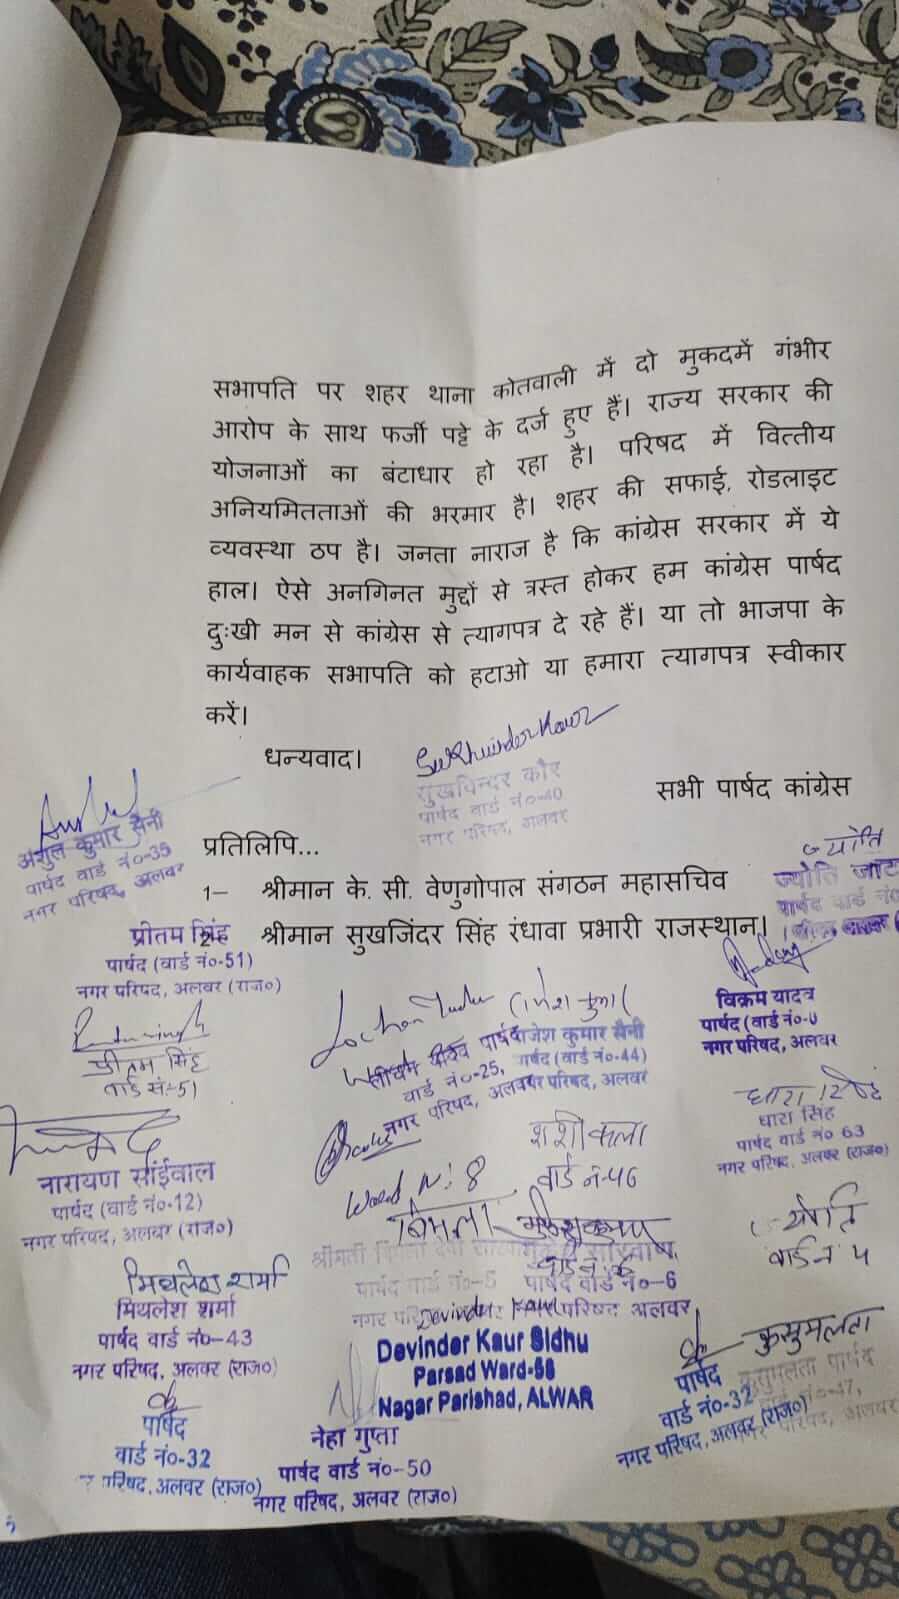 सभापति पर शहर थाना कोतवाली में दो मुकदमें गंभीर
आरोप के साथ फर्जी पट्टे के दर्ज हुए हैं। राज्य सरकार की
योजनाओं का बंटाधार हो रहा है। परिषद में वित्तीय
अनियमितताओं की भरमार है। शहर की सफाई, रोडलाइट
व्यवस्था ठप है। जनता नाराज है कि कांग्रेस सरकार में ये
हाल। ऐसे अनगिनत मुद्दों से त्रस्त होकर हम कांग्रेस पार्षद
दुःखी मन से कांग्रेस से त्यागपत्र दे रहे हैं। या तो भाजपा के
कार्यवाहक सभापति को हटाओ या हमारा त्यागपत्र स्वीकार
करें।
धन्यवाद।
Sukhwinder Kour
सुखविन्दर कौर
पार्षद वार्ड नं०-40
नगर परिषद, अलवर
सभी पार्षद कांग्रेस
अंशुल कुमार सैनी
पार्षद वार्ड नं०-35
नगर परिषद, अलवर
प्रतिलिपि...
1– श्रीमान के. सी. वेणुगोपाल संगठन महासचिव
2 श्रीमान सुखजिंदर सिंह रंधावा प्रभारी राजस्थान।
ज्योति
ज्योति जाट
पार्षद वार्ड नं०
प्रीतम सिंह
पार्षद (वार्ड नं०-51)
नगर परिषद, अलवर (राज०)
प्रीतम सिंह
वार्ड सं:-51
विक्रम यादव
पार्षद (वार्ड नं०-
नगर परिषद, अलवर
यादव पार्षद
वार्ड नं०-25,
नगर परिषद, अलवर
राजेश कुमार सैनी
पार्षद (वार्ड नं०-44)
परिषद, अलवर
धारा सिंह
धारा सिंह
पार्षद वार्ड नं० 63
नगर परिषद, अलवर (राज०)
नारायण साईवाल
पार्षद (वार्ड नं०-12)
नगर परिषद, अलवर (राज०)
Word N: 8
शशीकला
वार्ड नं-46
ज्योति
वार्ड नं 4
बिमला
श्रीमती
पार्षद वार्ड नं०-5
पार्षद वार्ड नं०-6
परिषद अलवर
मिथलेश शर्मा
मिथलेश शर्मा
पार्षद वार्ड नं०-43
नगर परिषद, अलवर (राज०)
Devinder Kaur
Devinder Kaur Sidhu
Parsad Ward-58
Nagar Parishad, ALWAR
कुसुमलता
कुसुमलता पार्षद
पार्षद
वार्ड नं०-32
नगर परिषद, अलवर (राज०)
पार्षद
वार्ड नं०-32
परिषद, अलवर (राज०)
नेहा गुप्ता
पार्षद वार्ड नं०-50
नगर परिषद, अलवर (राज०)